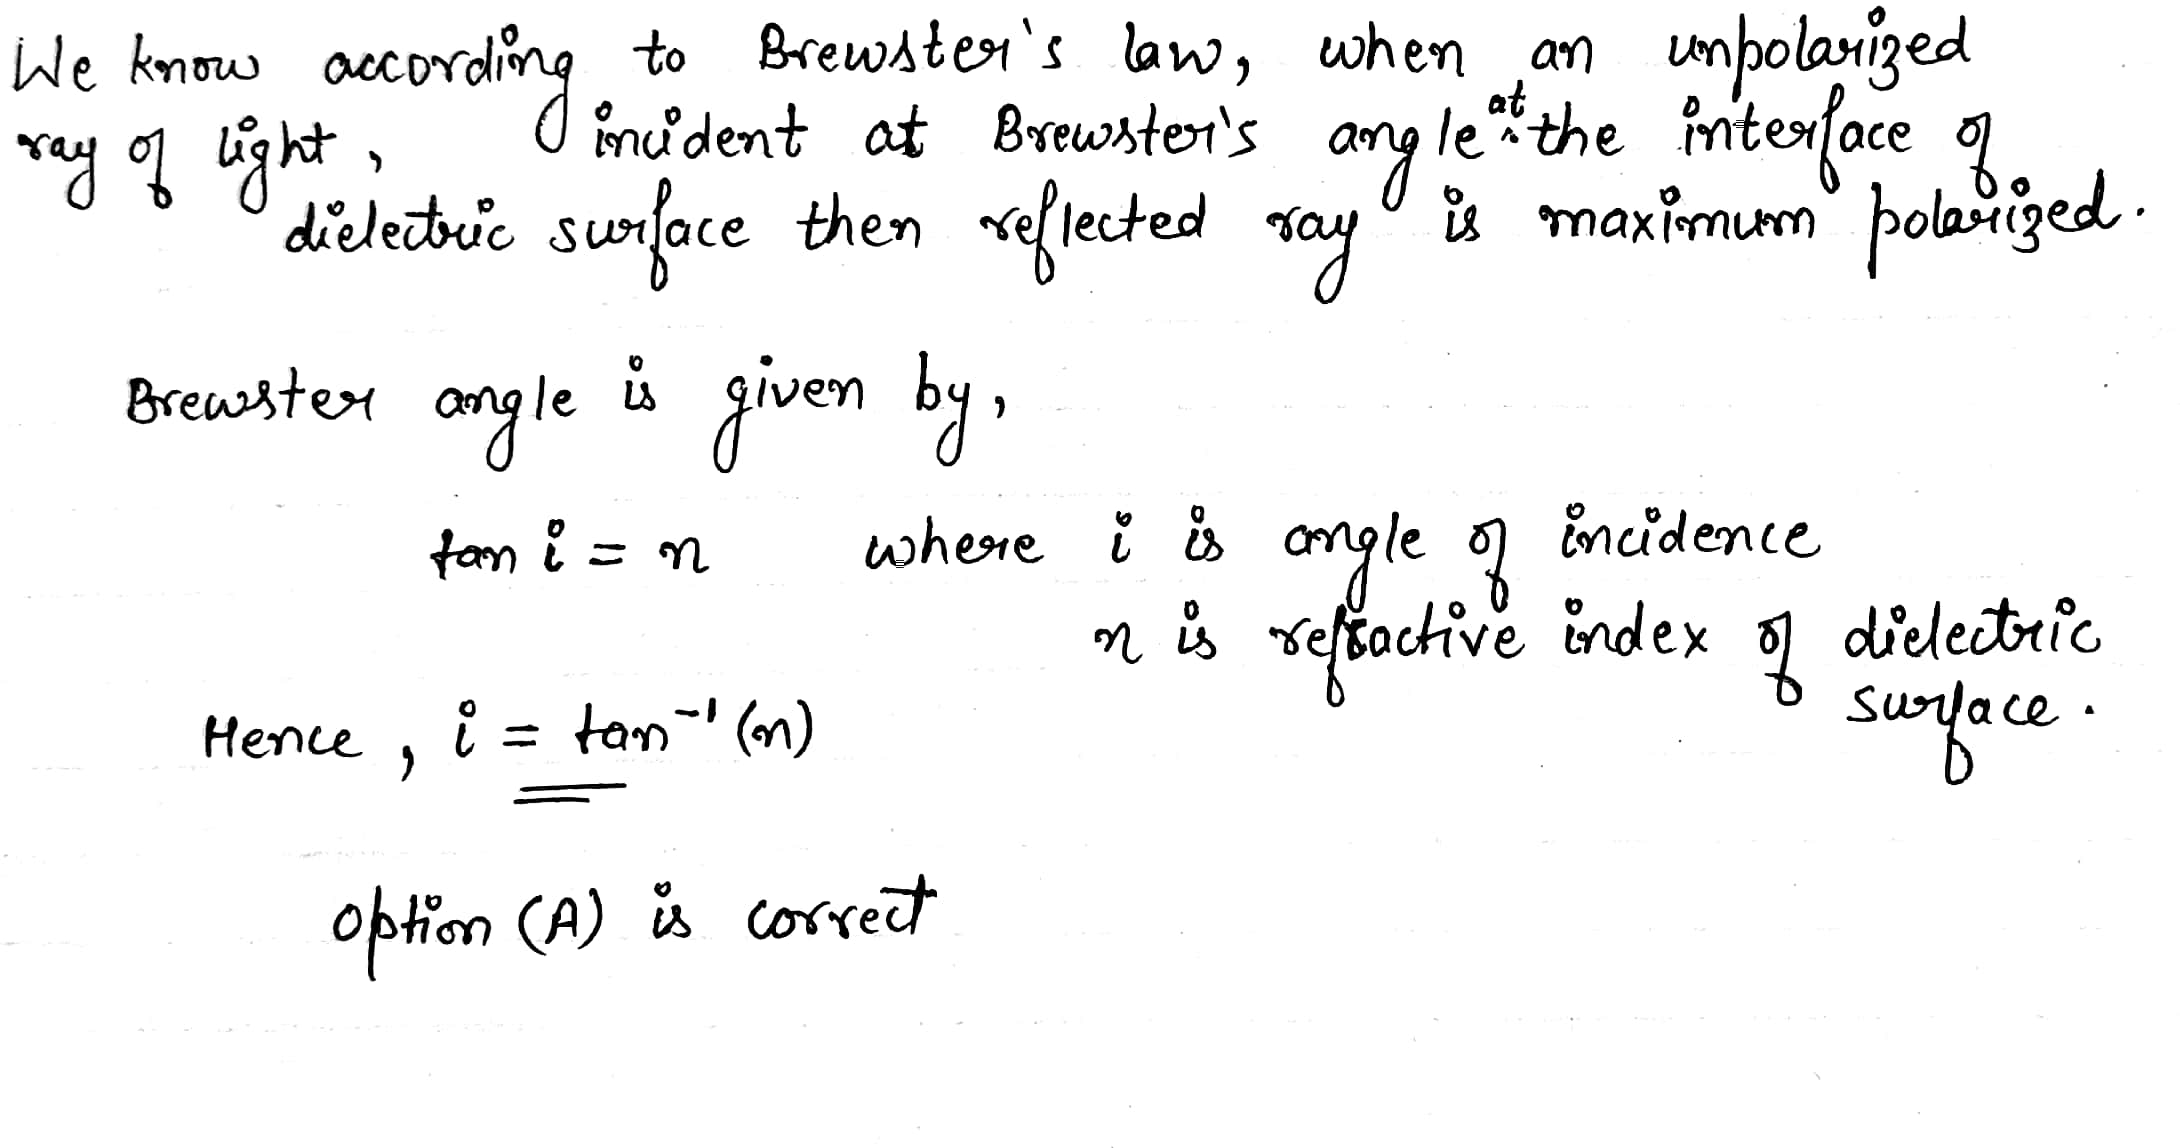 We know according to Brewster's law, when an unpolarized
ray of light, incident at Brewster's angle at the interface of
dielectric surface then reflected ray is maximum polarized.
Brewster angle is given by,
tan i = n where i is angle of incidence
n is refractive index of dielectric
surface.
Hence, i = tan⁻¹(n)
option (A) is correct